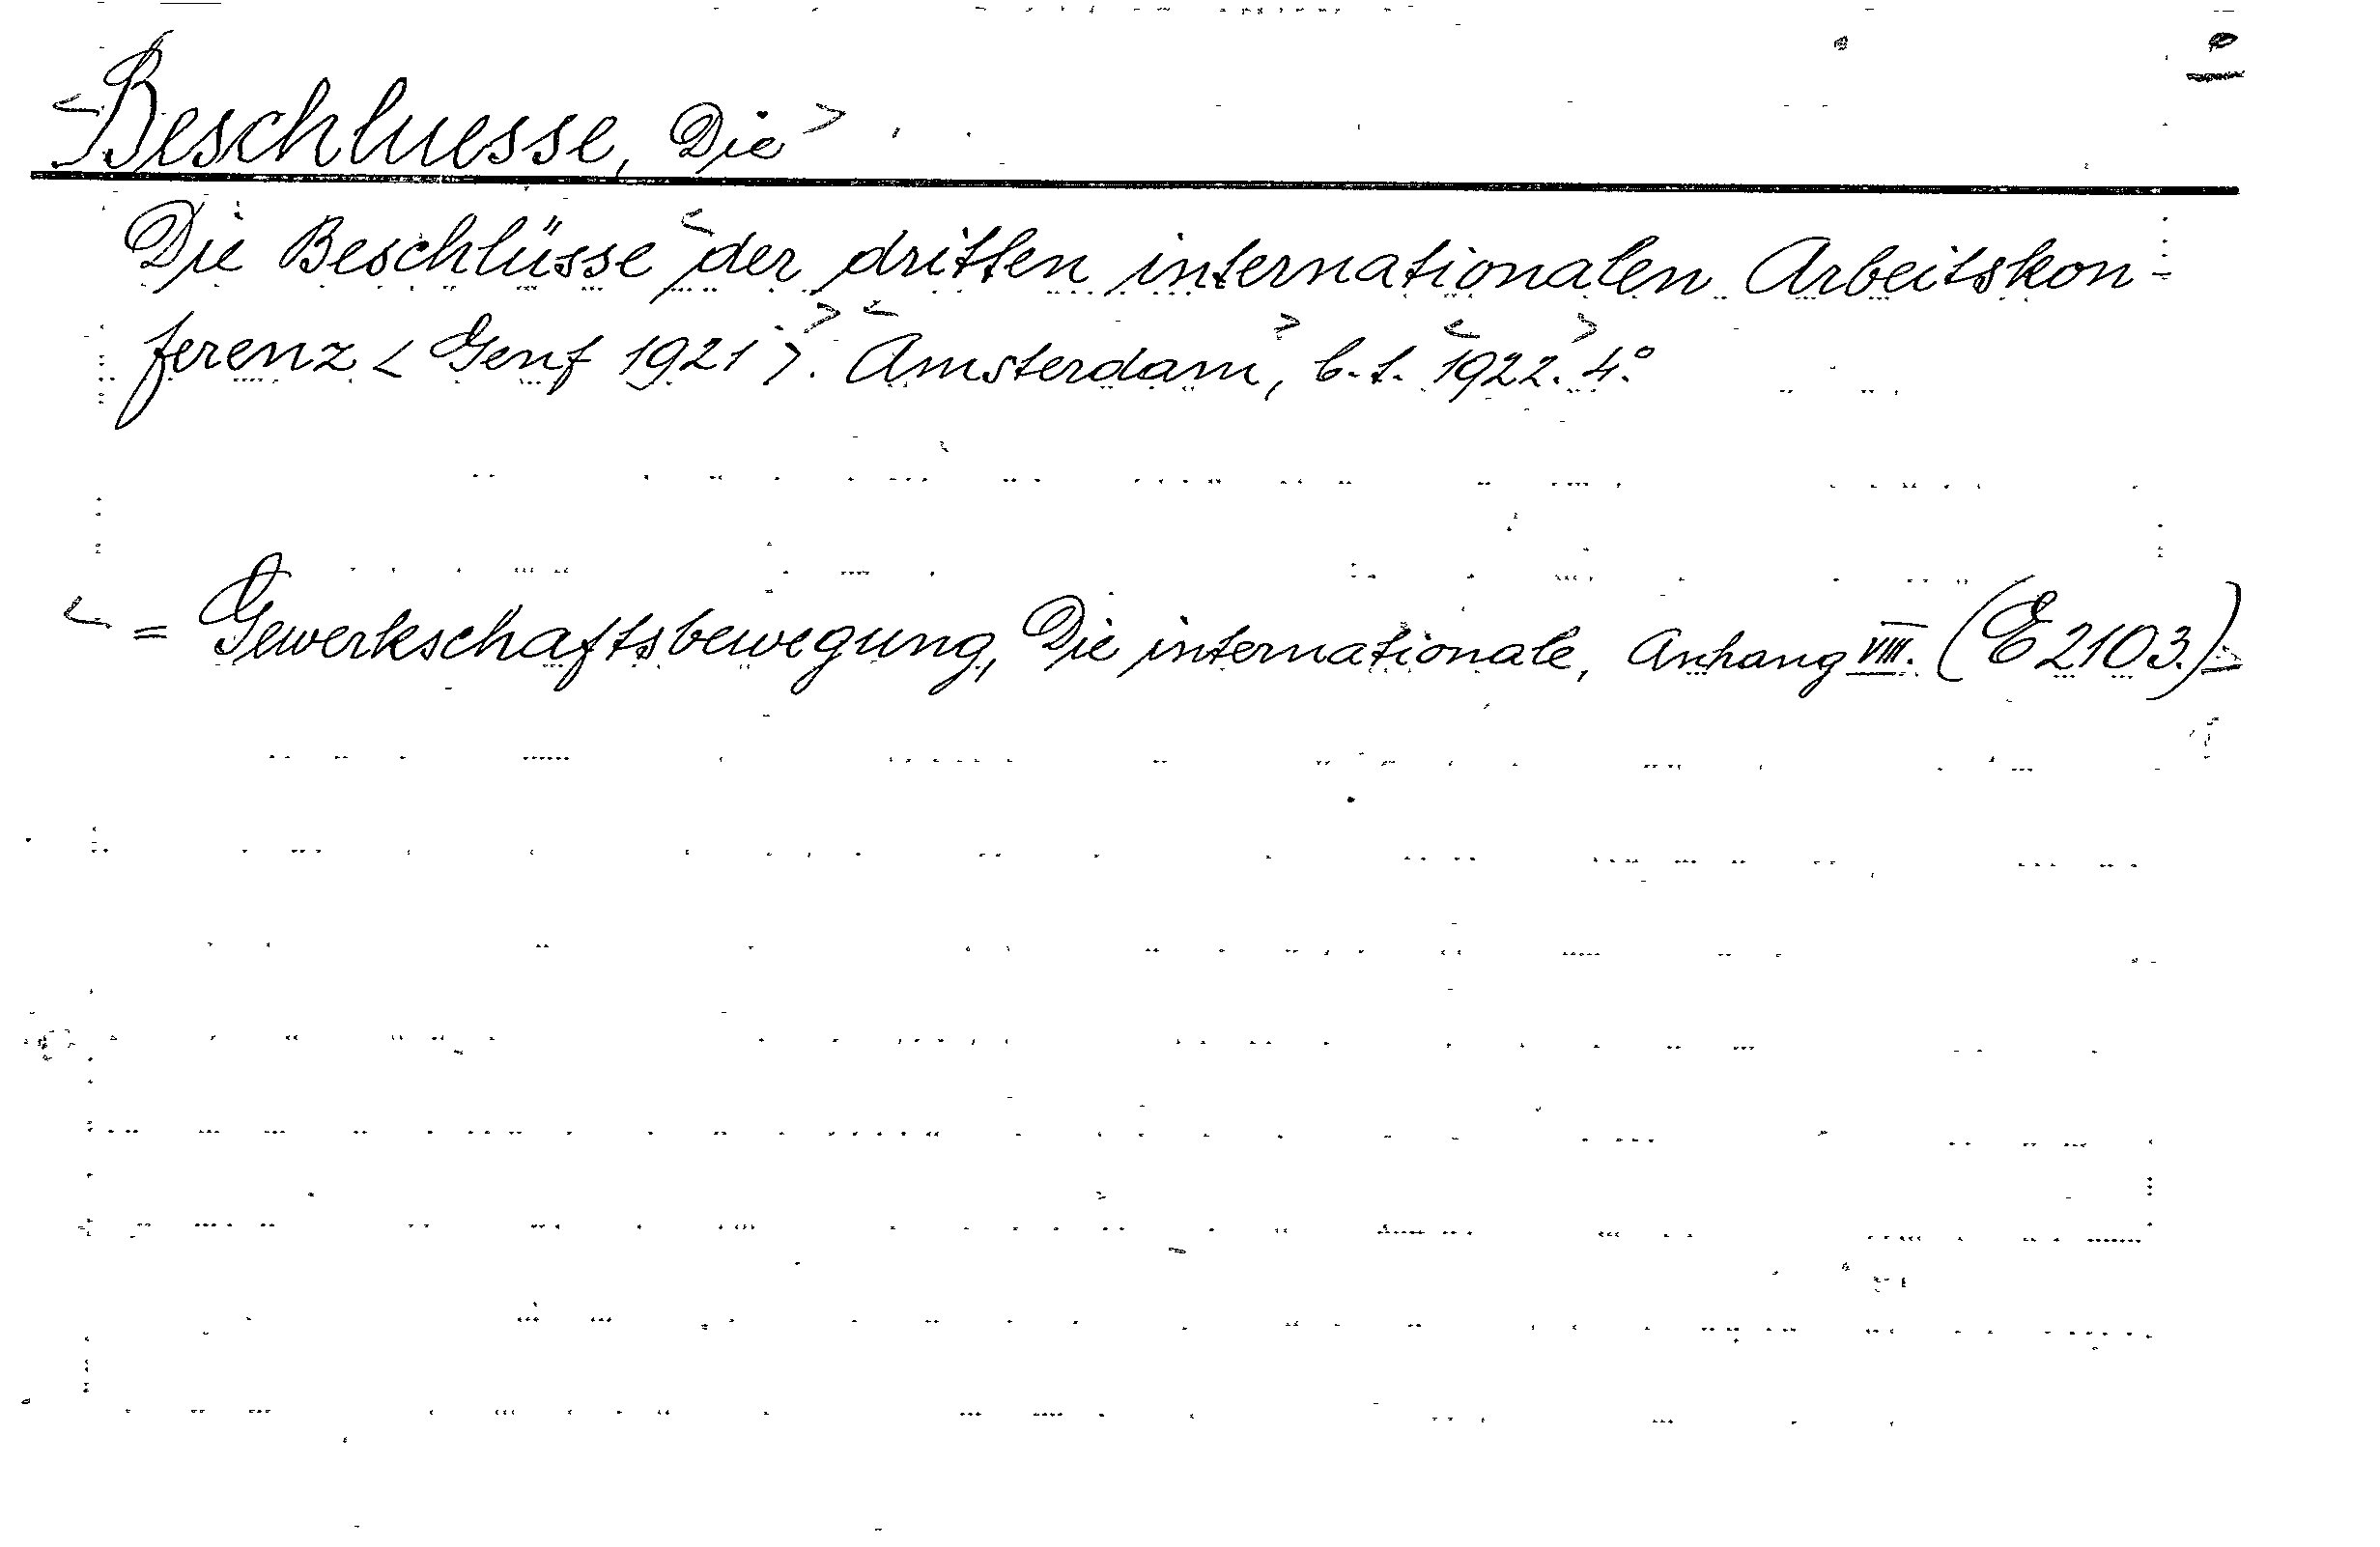 <Beschluesse, Die>
Die Beschlüsse <der dritten internationalen Arbeitskon-
ferenz < Genf 1921 >.> <Amsterdam>, b. t. <1922.> 4°.
<= Gewerkschaftsbewegung, Die internationale, Anhang VIII. (E 2103.)>